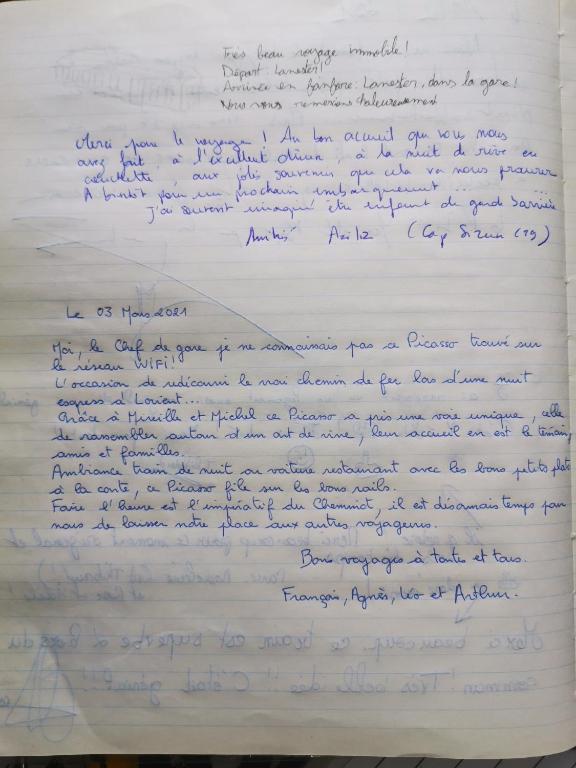 Très beau voyage immobile!
Départ: Lanester!
Arrivée en fanfare: Lanester, dans la gare!
Nous vous remercions chaleureusement
Merci pour le voyage! Au bon accueil que vous nous
avez fait, à l'excellent dîner, à la nuit de rêve en
couchette, aux jolis souvenirs que cela va nous
A bientôt pour un prochain embarquement ... ...
J'ai souvent imaginé être enfant de garde barrière
Aziliz (Cap Sizun (29)
Le 03 Mars 2021
Moi, le Chef de gare je ne connaissais pas ce Picasso trouvé sur
le réseau WIFI!
L'occasion de redécouvrir le vrai chemin de fer lors d'une nuit
express à Lorient...
Grâce à Mireille et Michel ce Picasso a pris une voie unique, celle
de rassembler autour d'un art de vivre, leur accueil en est le témoin,
amis et familles.
Ambiance train de nuit ou voiture restaurant avec les bons petits plats
à la carte, ce Picasso file sur les bons rails.
Faire l'heure est l'impératif du Cheminot, il est désormais temps pour
nous de laisser notre place aux autres voyageurs.
Bons voyages à toutes et tous.
François, Agnès, Léo et Arthur.